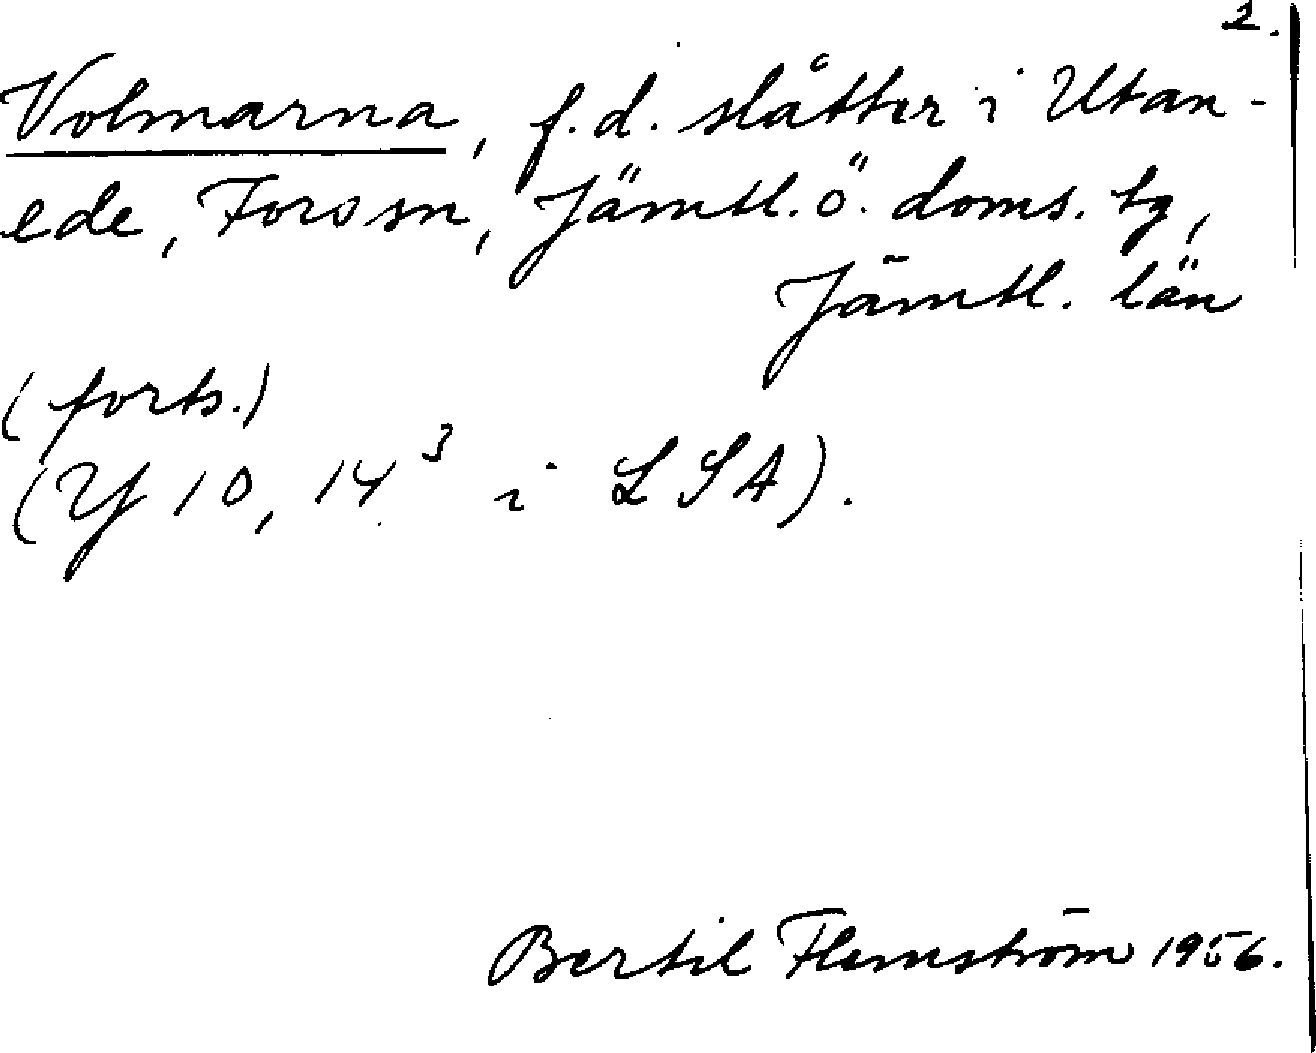 2.
Volmarna, f.d. slåtter i Utan-
ede, Fors sn, Jämtl. ö. doms. tg,
Jämtl. län
(forts.)
(Y 10, 14³ i LSA).
Bertil Flemström 1956.